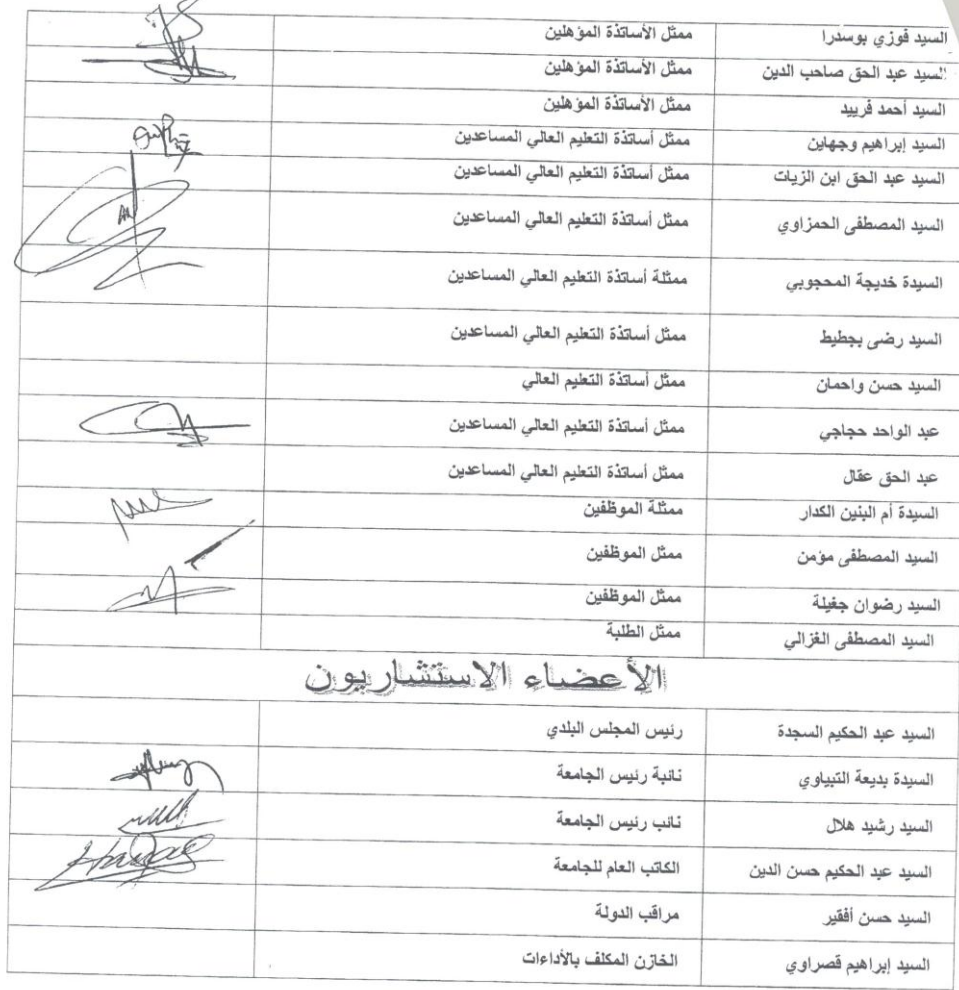 السيد فوزي بوسدرا ممثل الأساتذة المؤهلين
السيد عبد الحق صاحب الدين ممثل الأساتذة المؤهلين
السيد أحمد فرييد ممثل الأساتذة المؤهلين
السيد إبراهيم وجهاين ممثل أساتذة التعليم العالي المساعدين
السيد عبد الحق ابن الزيات ممثل أساتذة التعليم العالي المساعدين
السيد المصطفى الحمزاوي ممثل أساتذة التعليم العالي المساعدين
السيدة خديجة المحجوبي ممثلة أساتذة التعليم العالي المساعدين
السيد رضى بجطيط ممثل أساتذة التعليم العالي المساعدين
السيد حسن واحمان ممثل أساتذة التعليم العالي
عبد الواحد حجاجي ممثل أساتذة التعليم العالي المساعدين
عبد الحق عقال ممثل أساتذة التعليم العالي المساعدين
السيدة أم البنين الكدار ممثلة الموظفين
السيد المصطفى مؤمن ممثل الموظفين
السيد رضوان جغيلة ممثل الموظفين
السيد المصطفى الغزالي ممثل الطلبة
الأعضاء الاستشاريون
السيد عبد الحكيم السجدة رئيس المجلس البلدي
السيدة بديعة التبياوي نائبة رئيس الجامعة
السيد رشيد هلال نائب رئيس الجامعة
السيد عبد الحكيم حسن الدين الكاتب العام للجامعة
السيد حسن أفقير مراقب الدولة
السيد إبراهيم قصراوي الخازن المكلف بالأداءات